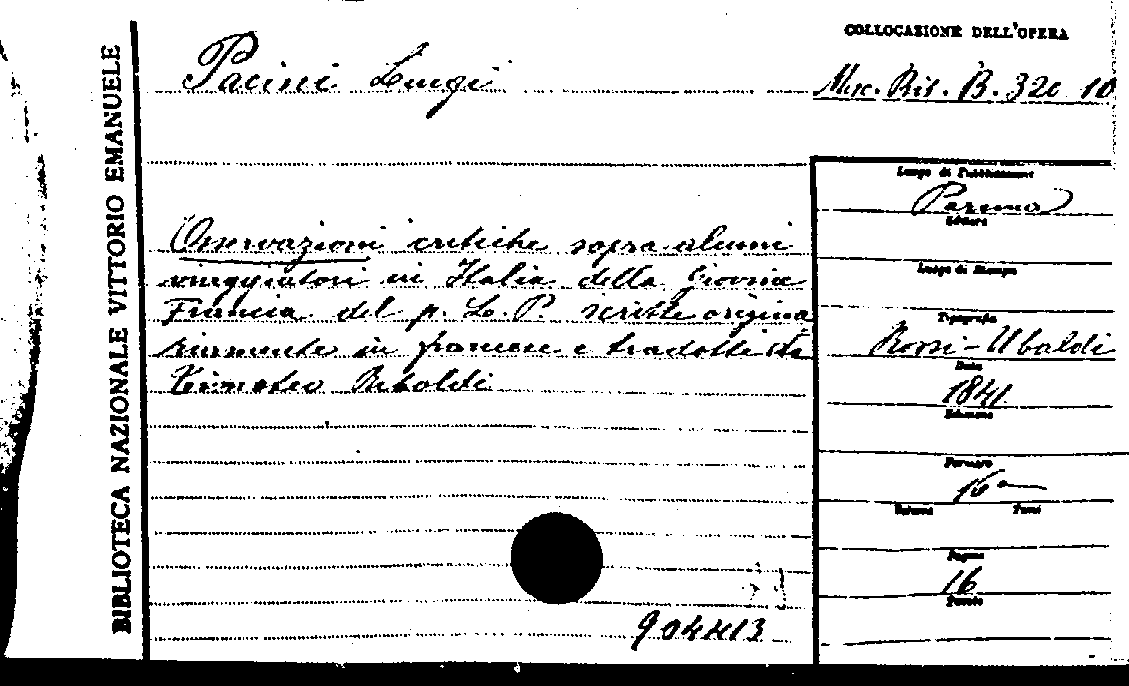 BIBLIOTECA NAZIONALE VITTORIO EMANUELE
COLLOCAZIONE DELL'OPERA
Pacini Luigi
Misc. Ris. B. 320 10
Osservazioni critiche sopra alcuni
viaggiatori in Italia della Giovine
Francia del p. L. P. scritte origina
riamente in francese e tradotte da
Timoteo Riboldi
Luogo di Pubblicazione
Parma
Editore
Luogo di Stampa
Tipografia
Rossi-Ubaldi
Data
1841
Edizione
Formato
16°
Volume Tomi
Pagine
16
904413